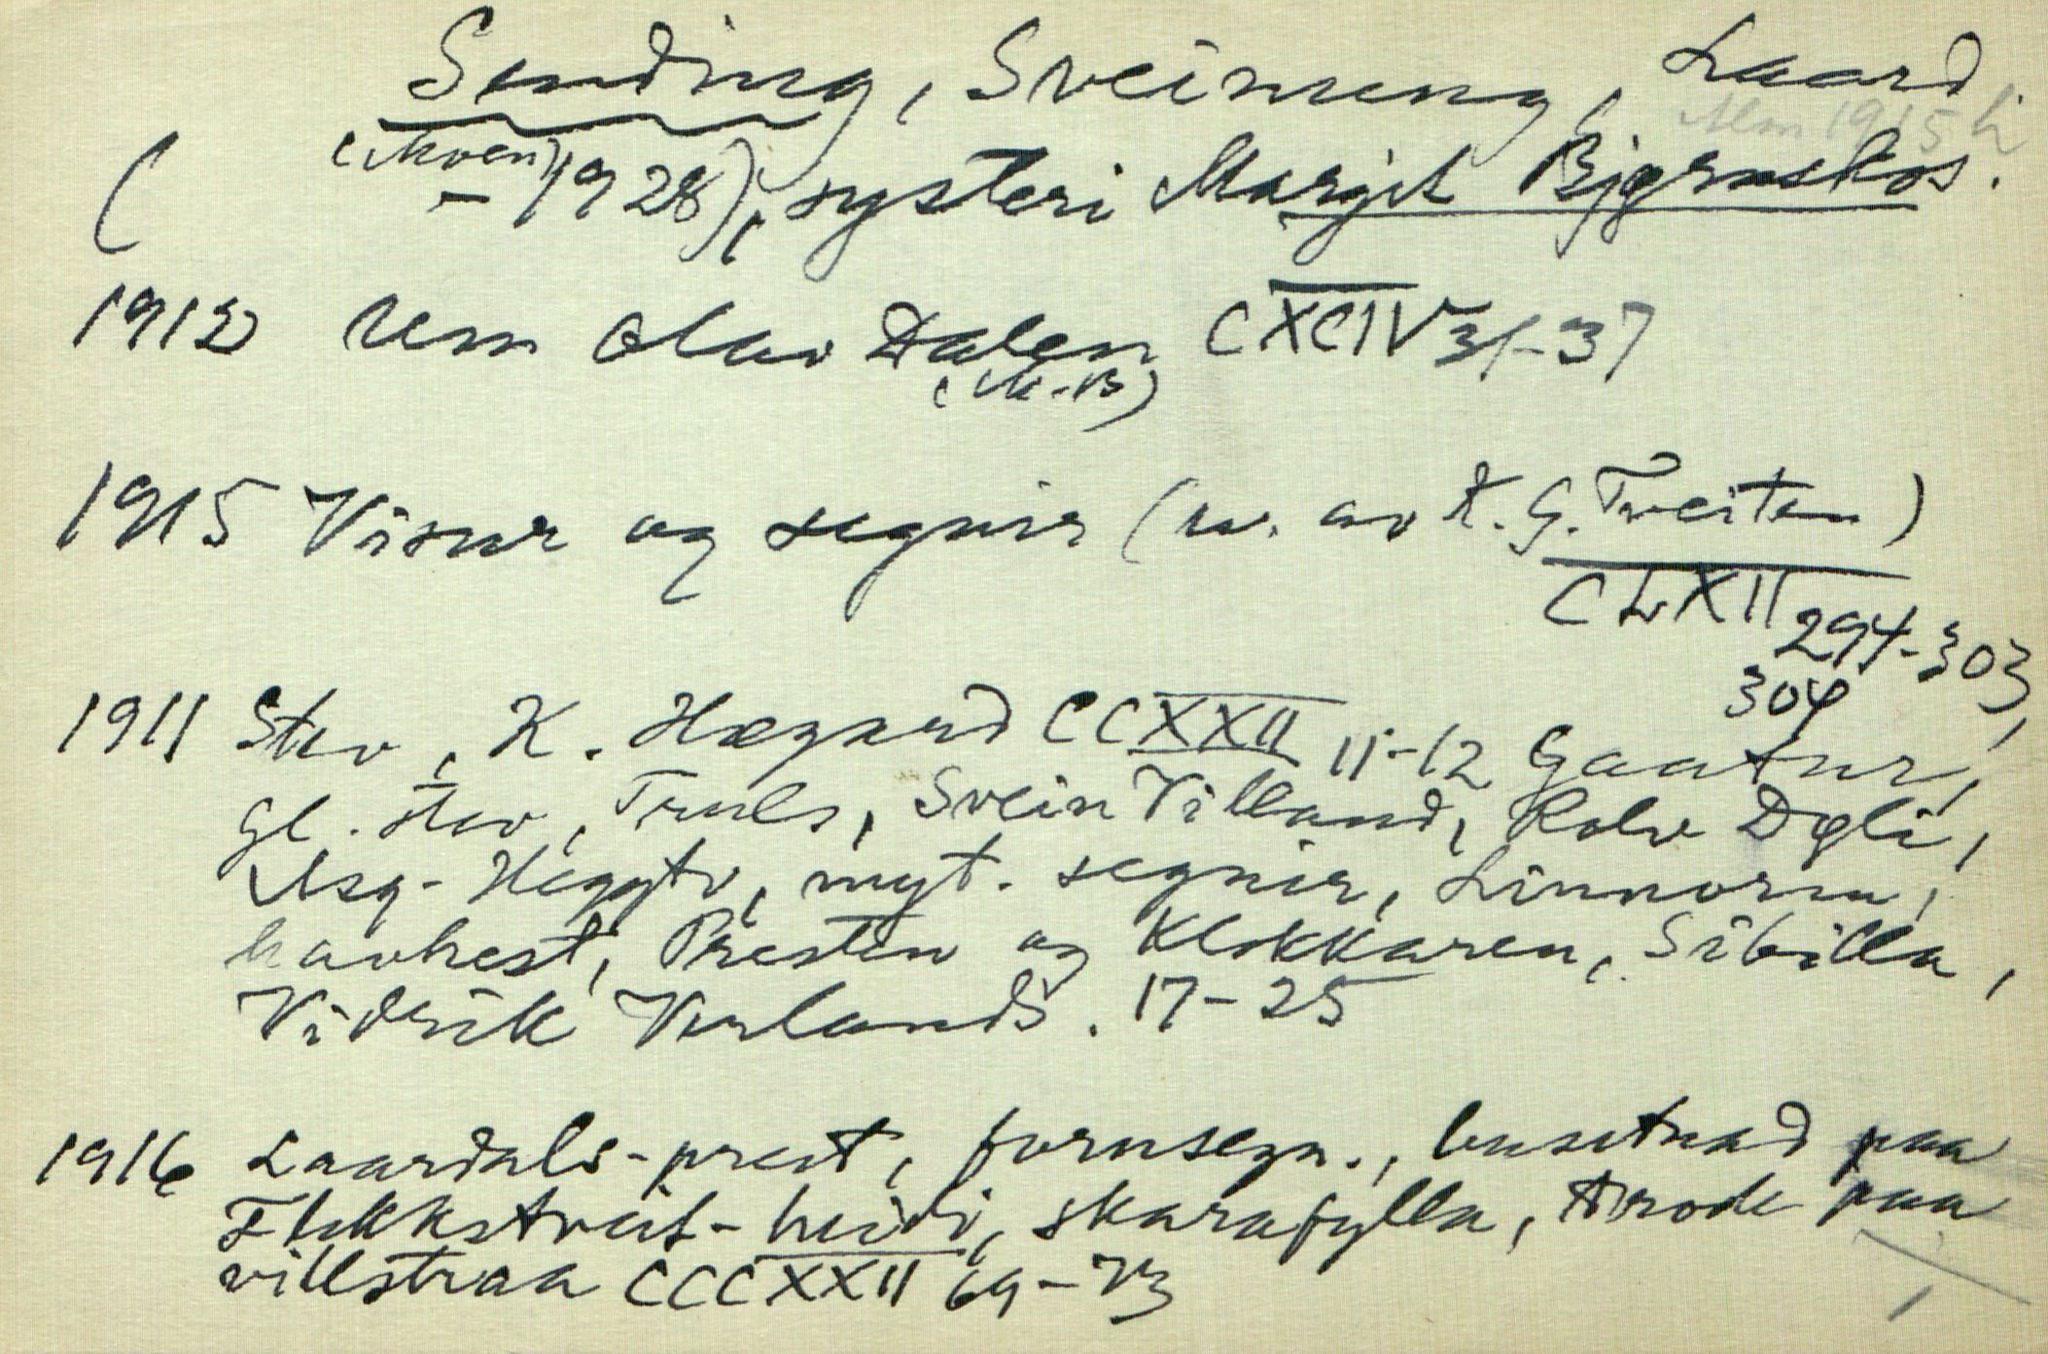 Sending, Sveinung, Laard.
( (Moen) - 1928), systeri Margit Bjørnskos.
1912 Um Olav Dalen CXCIV 31-37
(M.B)
1915 Visur og segnir (u. av K. G. Tveiten)
CLXII 294-303,
304
1911 Stev, K. Hægard CCXXII 11-12 Gaatur,
gl. stev, Truls, Svein Villand, Rolv Døli,
myt. segnir, Linnorm,
havhest, Presten og Klokkaren, Sibilla,
Vidrik Verlands. 17-25
1916 Laardals-prest, fornsegn., busetnad paa
Flekkstveit-heidi, skarafylla, Brode paa
villstraa CCCXXII 69-73